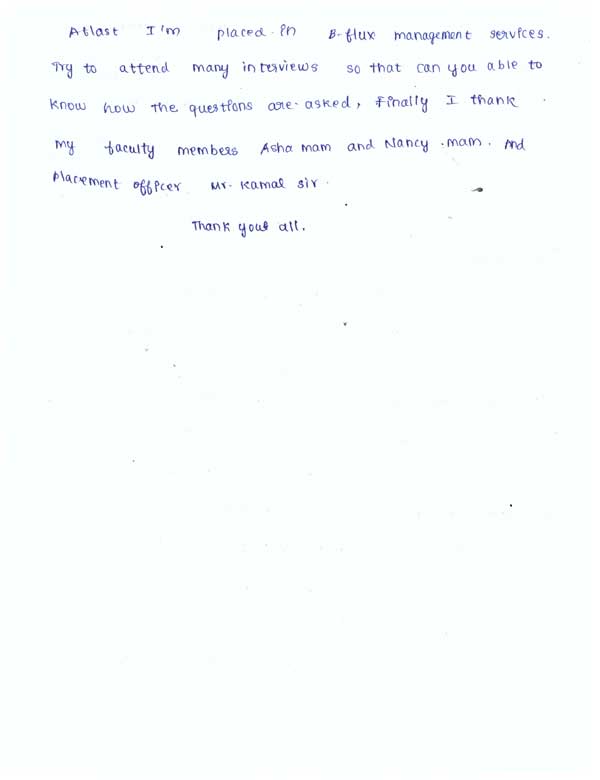 Atlast I'm placed in B-flux management services.
Try to attend many interviews so that can you able to
know how the questions are asked, Finally I thank
my faculty members Asha mam and Nancy mam. And
placement officer Mr. Kamal sir.
Thank you all.